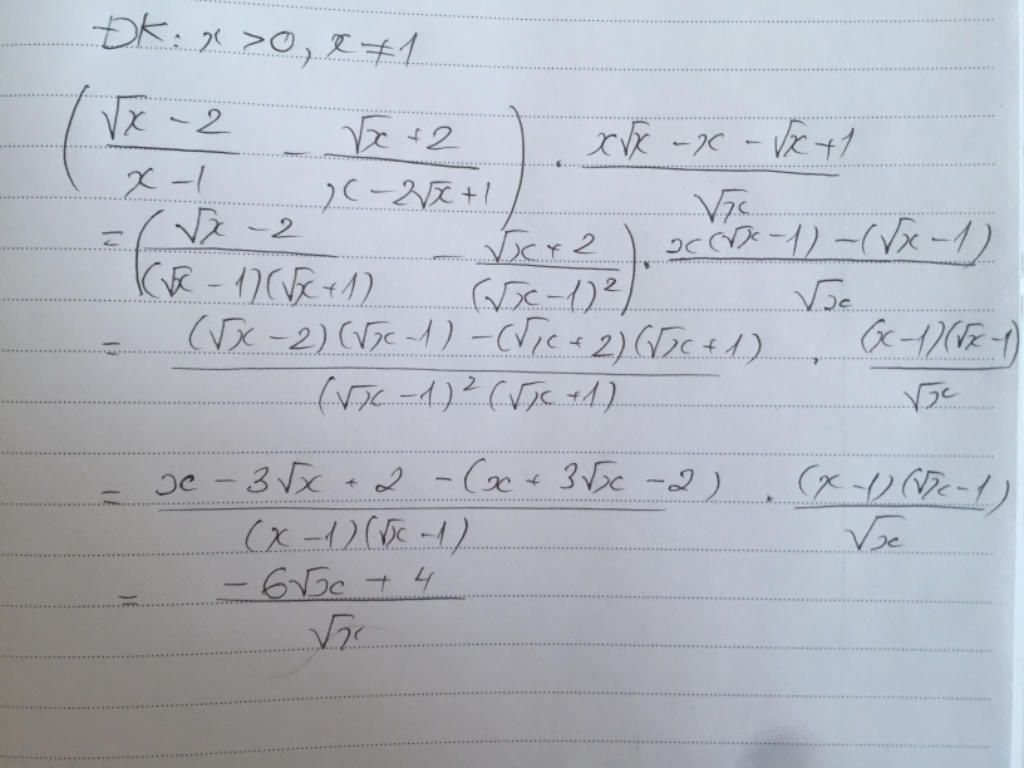 ĐK: x > 0, x ≠ 1
((√x - 2)/(x - 1) - (√x + 2)/(x - 2√x + 1)) . (x√x - x - √x + 1)/√x
= ((√x - 2)/((√x - 1)(√x + 1)) - (√x + 2)/(√x - 1)²) . (x(√x - 1) - (√x - 1))/√x
= ((√x - 2)(√x - 1) - (√x + 2)(√x + 1))/((√x - 1)²(√x + 1)) . ((x - 1)(√x - 1))/√x
= (x - 3√x + 2 - (x + 3√x - 2))/((x - 1)(√x - 1)) . ((x - 1)(√x - 1))/√x
= (-6√x + 4)/√x